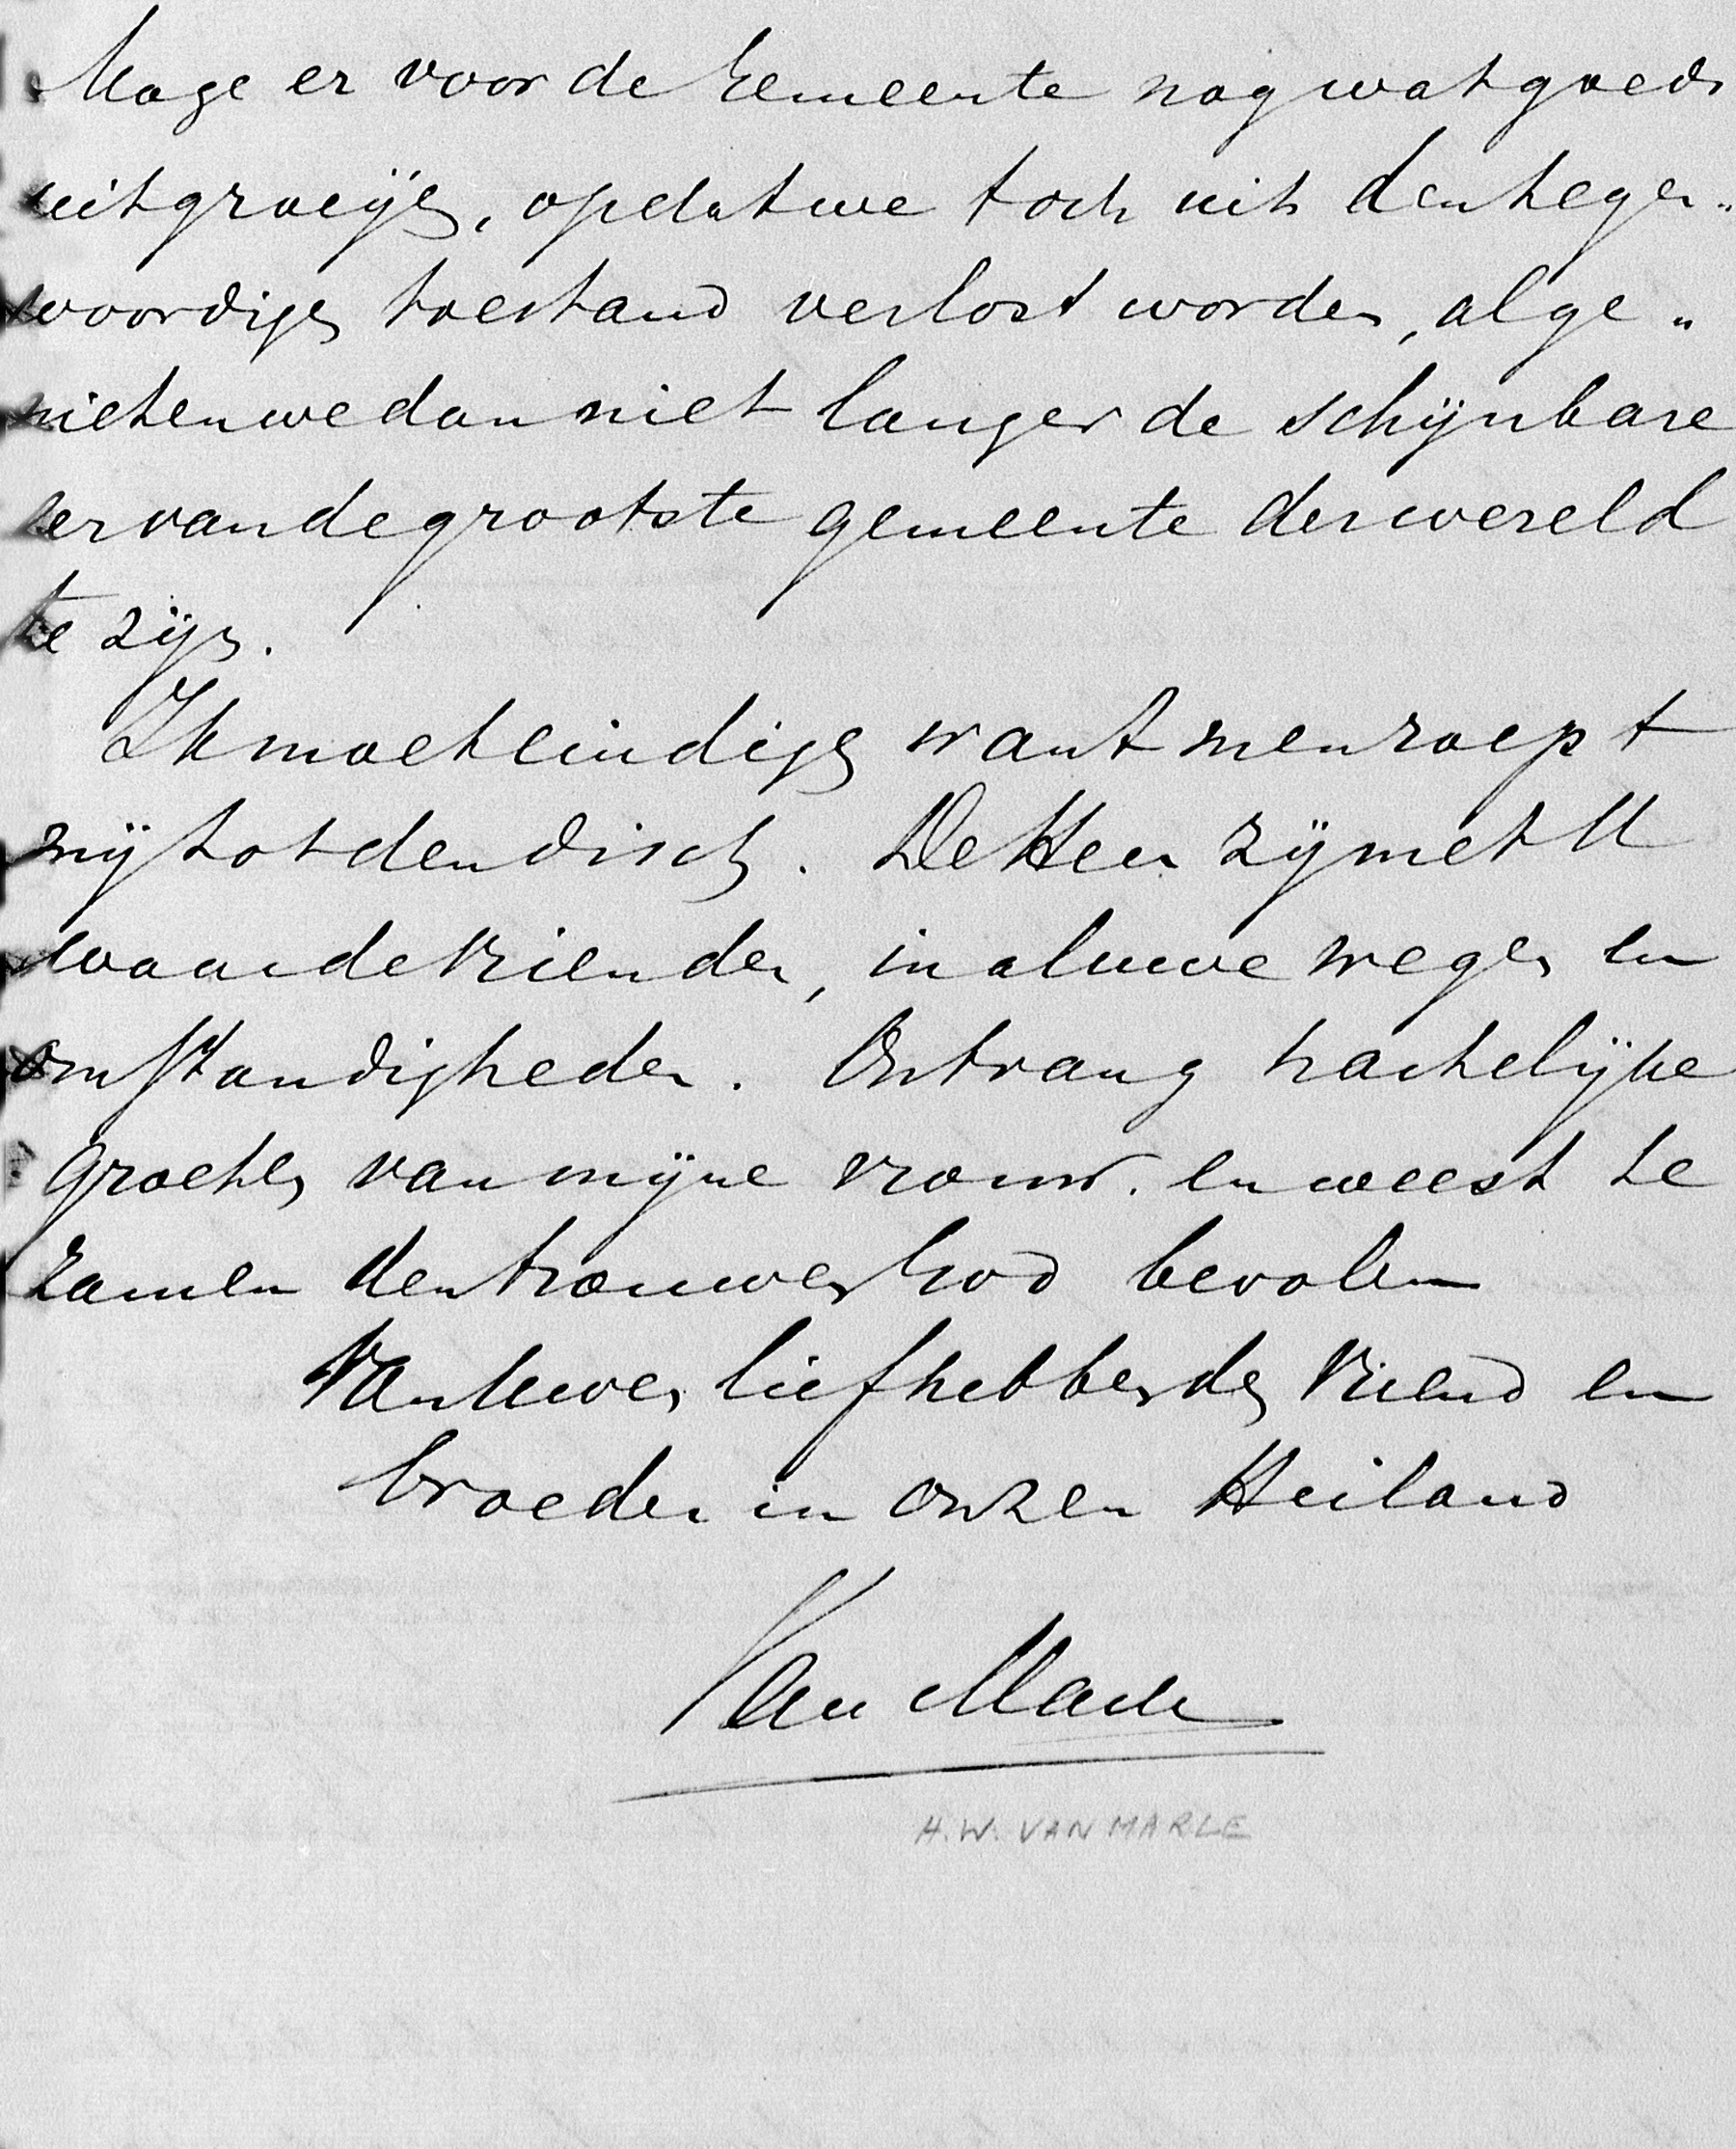 Moge er voor de Gemeente nog wat goeds
uitgroeijen, opdat we toch uit den tegen„
woordigen toestand verlost worden, al ge„
nieten we dan niet langer de schijnbare
eer van de grootste gemeente der wereld
te zijn.
Ik moet eindigen want men roept
mij tot den disch. De Heer zij met U
waarde vrienden, in al uwe wegen en
omstandigheden. Ontvang hartelijke
groeten van mijne vrouw. en weest te
zamen den trouwen God bevolen
Van Uwen liefhebbenden Vriend en
broeder in onzen Heiland
Van Marle
H. W. VAN MARLE